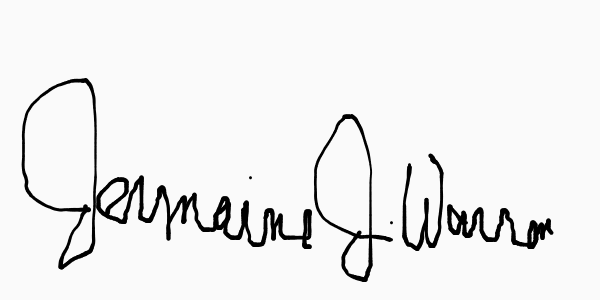 Jermaine J. Warren